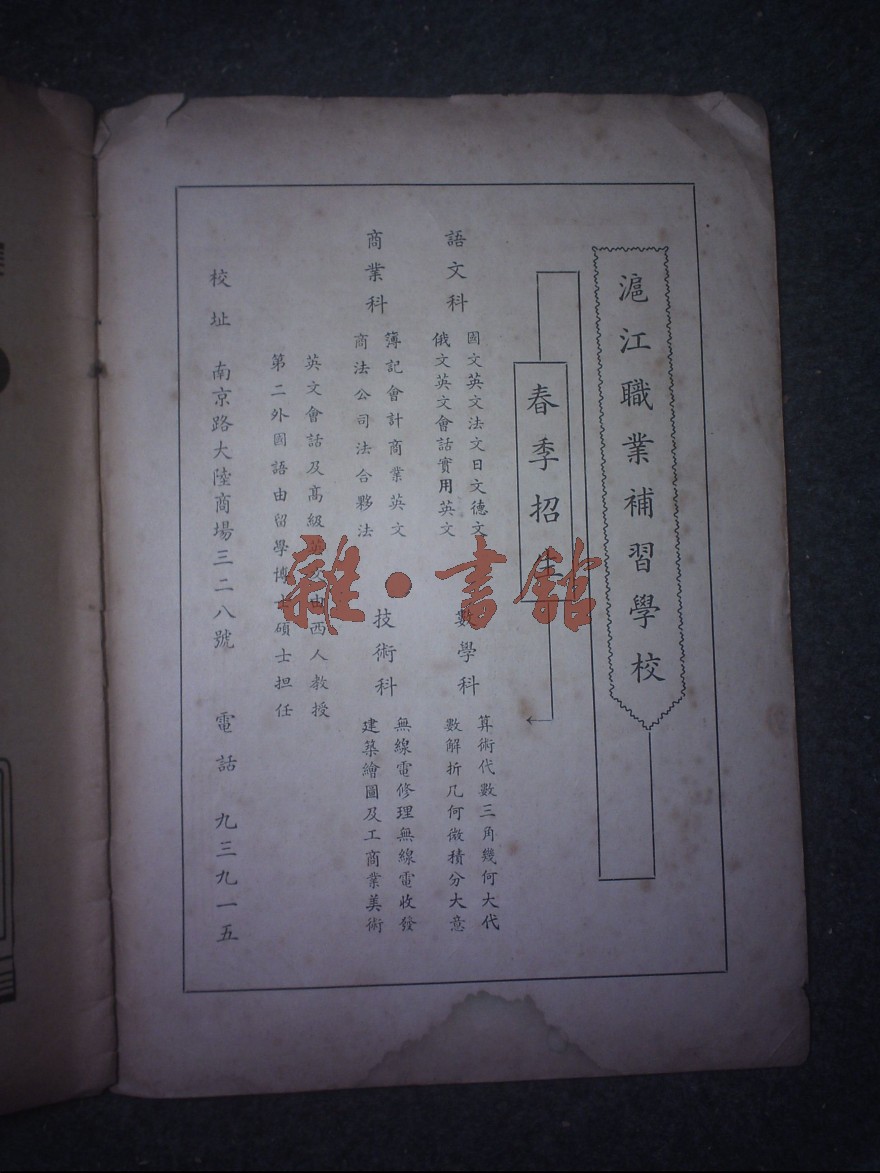 滬江職業補習學校
春季招生
語文科
國文英文法文日文德文
俄文英文會話實用英文
數學科
算術代數三角幾何大代
數解折几何微積分大意
商業科
簿記會計商業英文
商法公司法合夥法
技術科
無線電修理無線電收發
建築繪圖及工商業美術
英文會話及高級英文由西人教授
第二外國語由留學博士碩士担任
校址 南京路大陸商場三二八號 電話 九三九一五
雜·書館